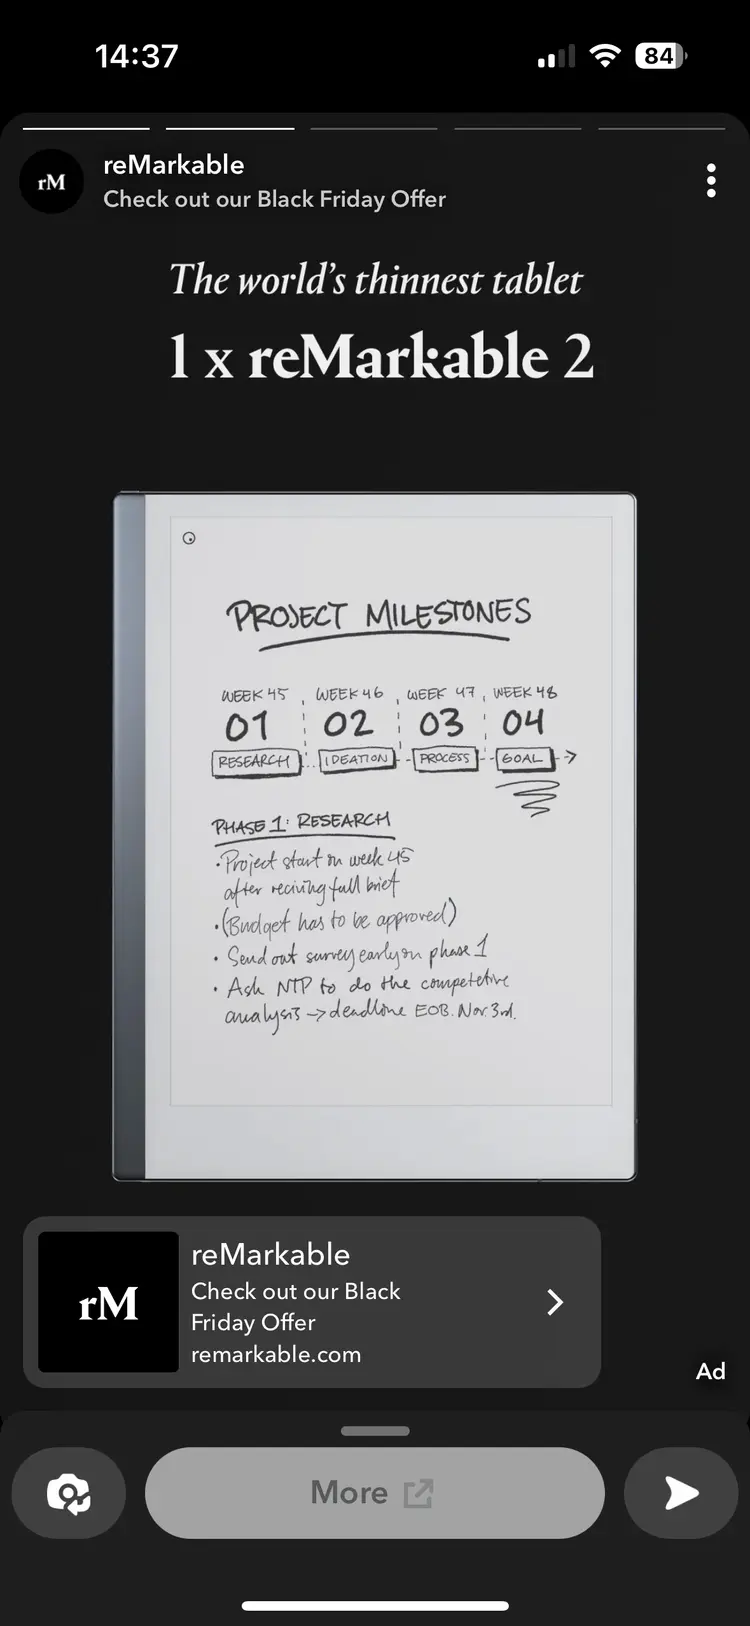 14:37
84
rM
reMarkable
Check out our Black Friday Offer
The world's thinnest tablet
1 x reMarkable 2
PROJECT MILESTONES
WEEK 45 WEEK 46 WEEK 47 WEEK 48
01 02 03 04
RESEARCH IDEATION PROCESS GOAL
PHASE 1: RESEARCH
• Project start on week 45
after reciving full brief
• (Budget has to be approved)
• Send out survey early on phase 1
• Ask NTP to do the competetive
analysis → deadline EOB. Nov. 3rd.
rM
reMarkable
Check out our Black
Friday Offer
remarkable.com
Ad
More